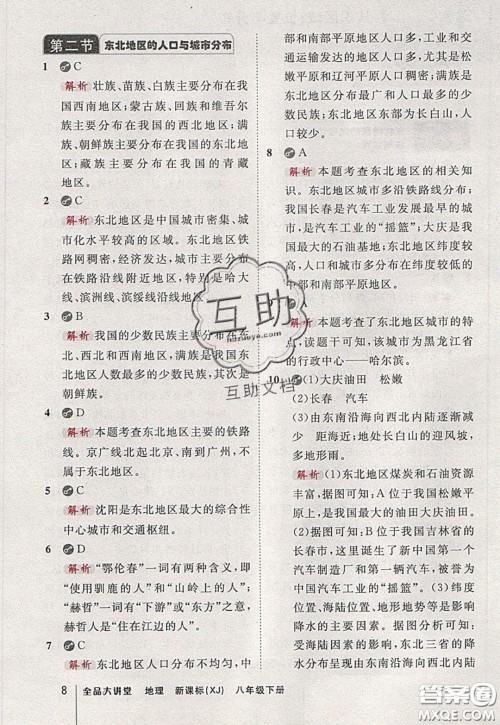 第二节 东北地区的人口与城市分布
1 C
解析 壮族、苗族、白族主要分布在我
国西南地区;蒙古族、回族和维吾尔
族主要分布在我国的西北地区;满
族、朝鲜族主要分布在我国的东北
地区;藏族主要分布在我国的青藏
地区。
2 C
解析 东北地区是中国城市密集、城
市化水平较高的区域。东北地区铁
路网稠密,经济发达,城市主要分布
在铁路沿线附近地区,特别是哈大
线、滨洲线、滨绥线沿线地区。
3 B
解析 我国的少数民族主要分布在东
北、西北和西南地区,其中东北地区
人口最多的少数民族是满族,其次是
朝鲜族。
4 C
解析 本题考查东北地区主要的铁路
线。京广线北起北京,南到广州,不
属于东北地区。
5 C
解析 沈阳是东北地区最大的综合性
中心城市和交通枢纽。
6 D
解析 “鄂伦春”一词有两种含义,即
“使用驯鹿的人”和“山岭上的人”;
“赫哲”一词有“下游”或“东方”之意,
赫哲人也自称为“住在江边的人”。
7 D
解析 东北地区地形平坦、工农业、交
部和南部平原地区人口多,工业和交
通运输发达的地区人口多,其中松嫩
平原和辽河平原人口稠密;满族是东
北地区分布最广和人口最多的少数
民族;东北地区东部为长白山,人
口较少。
8 A
解析 本题考查东北地区的相关知
识。东北地区城市多沿铁路线分布;
我国长春是汽车工业发展最早的城
市,是汽车工业的“摇篮”;大庆是我国
最大的石油基地;东北地区纬度较
高,人口和城市多分布在纬度较低的
中部和南部平原地区。
解析 本题考查了东北地区城市的特
点,读题干可知,该城市为黑龙江省
的行政中心——哈尔滨。
10 (1)大庆油田 松嫩
(2)长春 汽车
(3)由东南沿海向西北内陆逐渐减
少 距海近;东南侧是长白山的迎风坡,
多地形雨。
解析 (1)东北地区煤炭和石油资源
丰富,据图可知:图中A位于松嫩平
原上,是我国最大的油田大庆油田。
(2)据图可知:B位于我国吉林省的
长春市,这里诞生了新中国第一个
汽车制造厂——第一汽车制造厂,被誉为
中国汽车工业的“摇篮”。(3)影响降
水的因素主要有海陆因素、纬度因
素、地形地势等。从图中可以看出受
海陆因素的影响,东北地区年降水量
由东南沿海向西北内陆逐渐减少。
8 全品大讲堂 地理 新课标(XJ) 八年级下册
互助
hzwenku.com
互助文档
答案圈
MXQE.COM